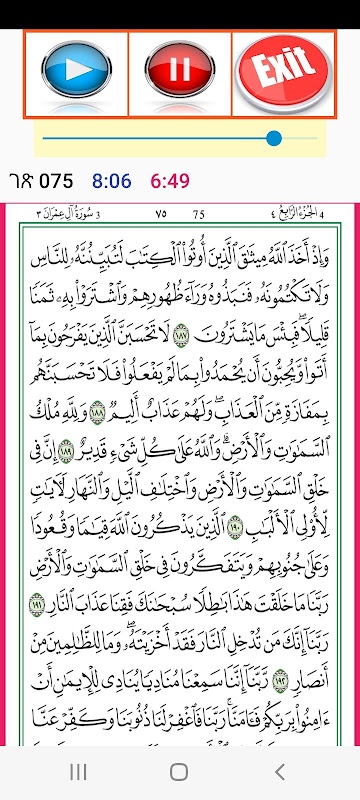 Exit
ገጽ 075 8:06 6:49
3 سُورَةُ آلِ عِمْرَان ٣ ٧٥ 75 الجُزْءُ الرَّابِعُ ٤ 4
وَإِذْ أَخَذَ ٱللَّهُ مِيثَٰقَ ٱلَّذِينَ أُوتُوا۟ ٱلْكِتَٰبَ لَتُبَيِّنُنَّهُۥ لِلنَّاسِ
وَلَا تَكْتُمُونَهُۥ فَنَبَذُوهُ وَرَآءَ ظُهُورِهِمْ وَٱشْتَرَوْا۟ بِهِۦ ثَمَنًا
قَلِيلًا ۖ فَبِئْسَ مَا يَشْتَرُونَ ١٨٧ لَا تَحْسَبَنَّ ٱلَّذِينَ يَفْرَحُونَ بِمَآ
أَتَوا۟ وَّيُحِبُّونَ أَن يُحْمَدُوا۟ بِمَا لَمْ يَفْعَلُوا۟ فَلَا تَحْسَبَنَّهُم
بِمَفَازَةٍ مِّنَ ٱلْعَذَابِ ۖ وَلَهُمْ عَذَابٌ أَلِيمٌ ١٨٨ وَلِلَّهِ مُلْكُ
ٱلسَّمَٰوَٰتِ وَٱلْأَرْضِ ۗ وَٱللَّهُ عَلَىٰ كُلِّ شَىْءٍ قَدِيرٌ ١٨٩ إِنَّ فِى
خَلْقِ ٱلسَّمَٰوَٰتِ وَٱلْأَرْضِ وَٱخْتِلَٰفِ ٱلَّيْلِ وَٱلنَّهَارِ لَءَايَٰتٍ
لِّأُو۟لِى ٱلْأَلْبَٰبِ ١٩٠ ٱلَّذِينَ يَذْكُرُونَ ٱللَّهَ قِيَٰمًا وَقُعُودًا
وَعَلَىٰ جُنُوبِهِمْ وَيَتَفَكَّرُونَ فِى خَلْقِ ٱلسَّمَٰوَٰتِ وَٱلْأَرْضِ
رَبَّنَا مَا خَلَقْتَ هَٰذَا بَٰطِلًا سُبْحَٰنَكَ فَقِنَا عَذَابَ ٱلنَّارِ ١٩١
رَبَّنَآ إِنَّكَ مَن تُدْخِلِ ٱلنَّارَ فَقَدْ أَخْزَيْتَهُۥ ۖ وَمَا لِلظَّٰلِمِينَ مِنْ
أَنصَارٍ ١٩٢ رَّبَّنَآ إِنَّنَا سَمِعْنَا مُنَادِيًا يُنَادِى لِلْإِيمَٰنِ أَنْ
ءَامِنُوا۟ بِرَبِّكُمْ فَـَٔامَنَّا ۚ رَبَّنَا فَٱغْفِرْ لَنَا ذُنُوبَنَا وَكَفِّرْ عَنَّا